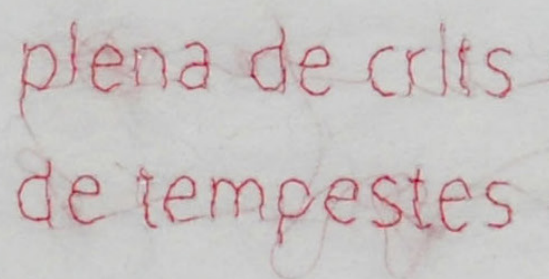 plena de crits
de tempestes